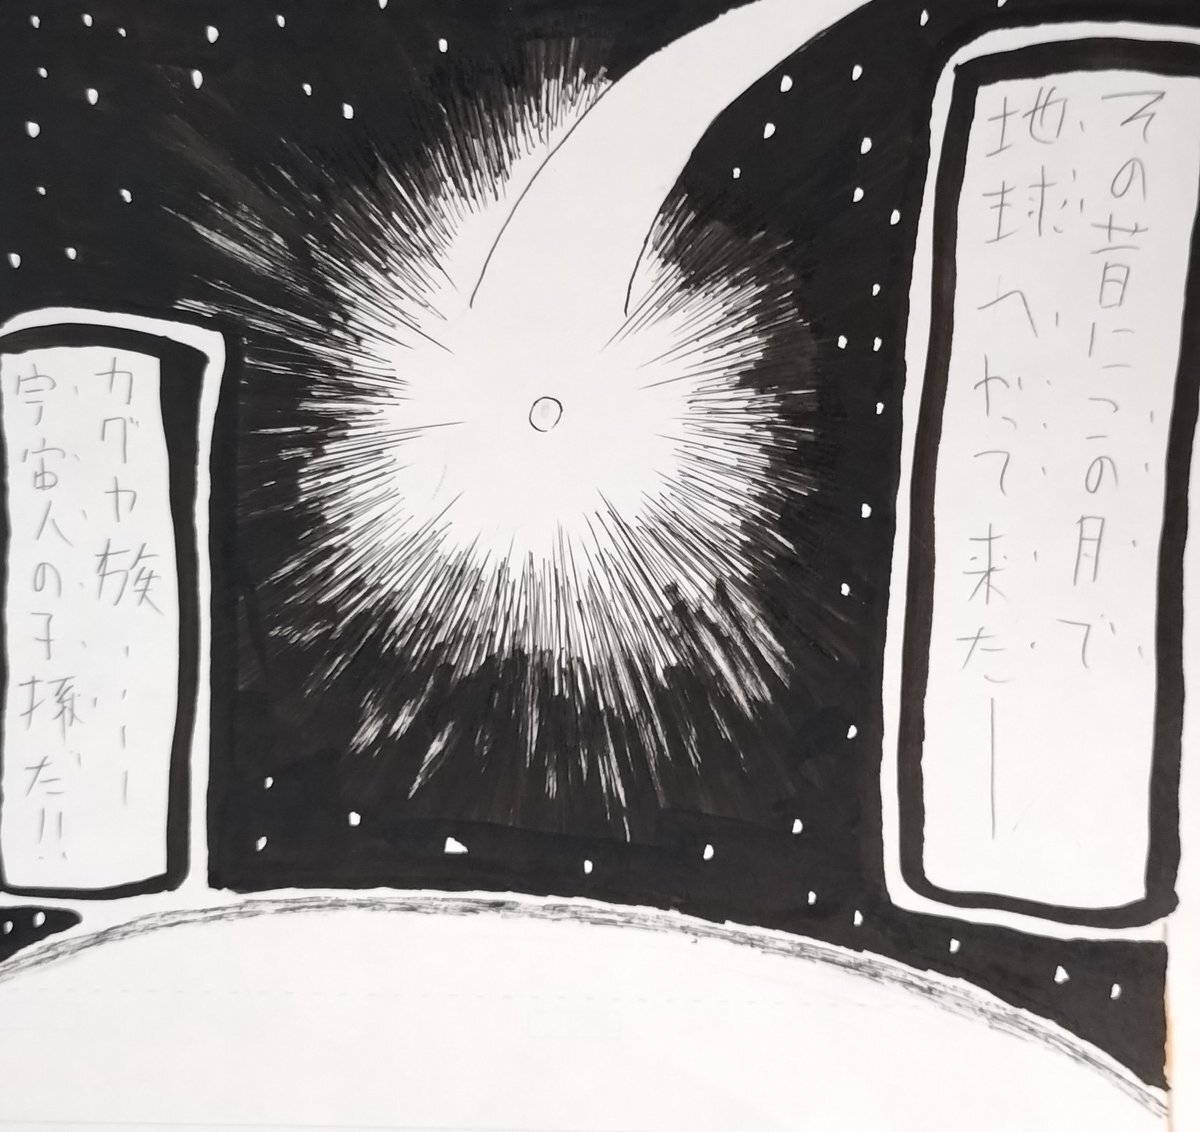 その昔にこの月で
地球へやって来た――
カグヤ族‥‥――
宇宙人の子孫だ!!